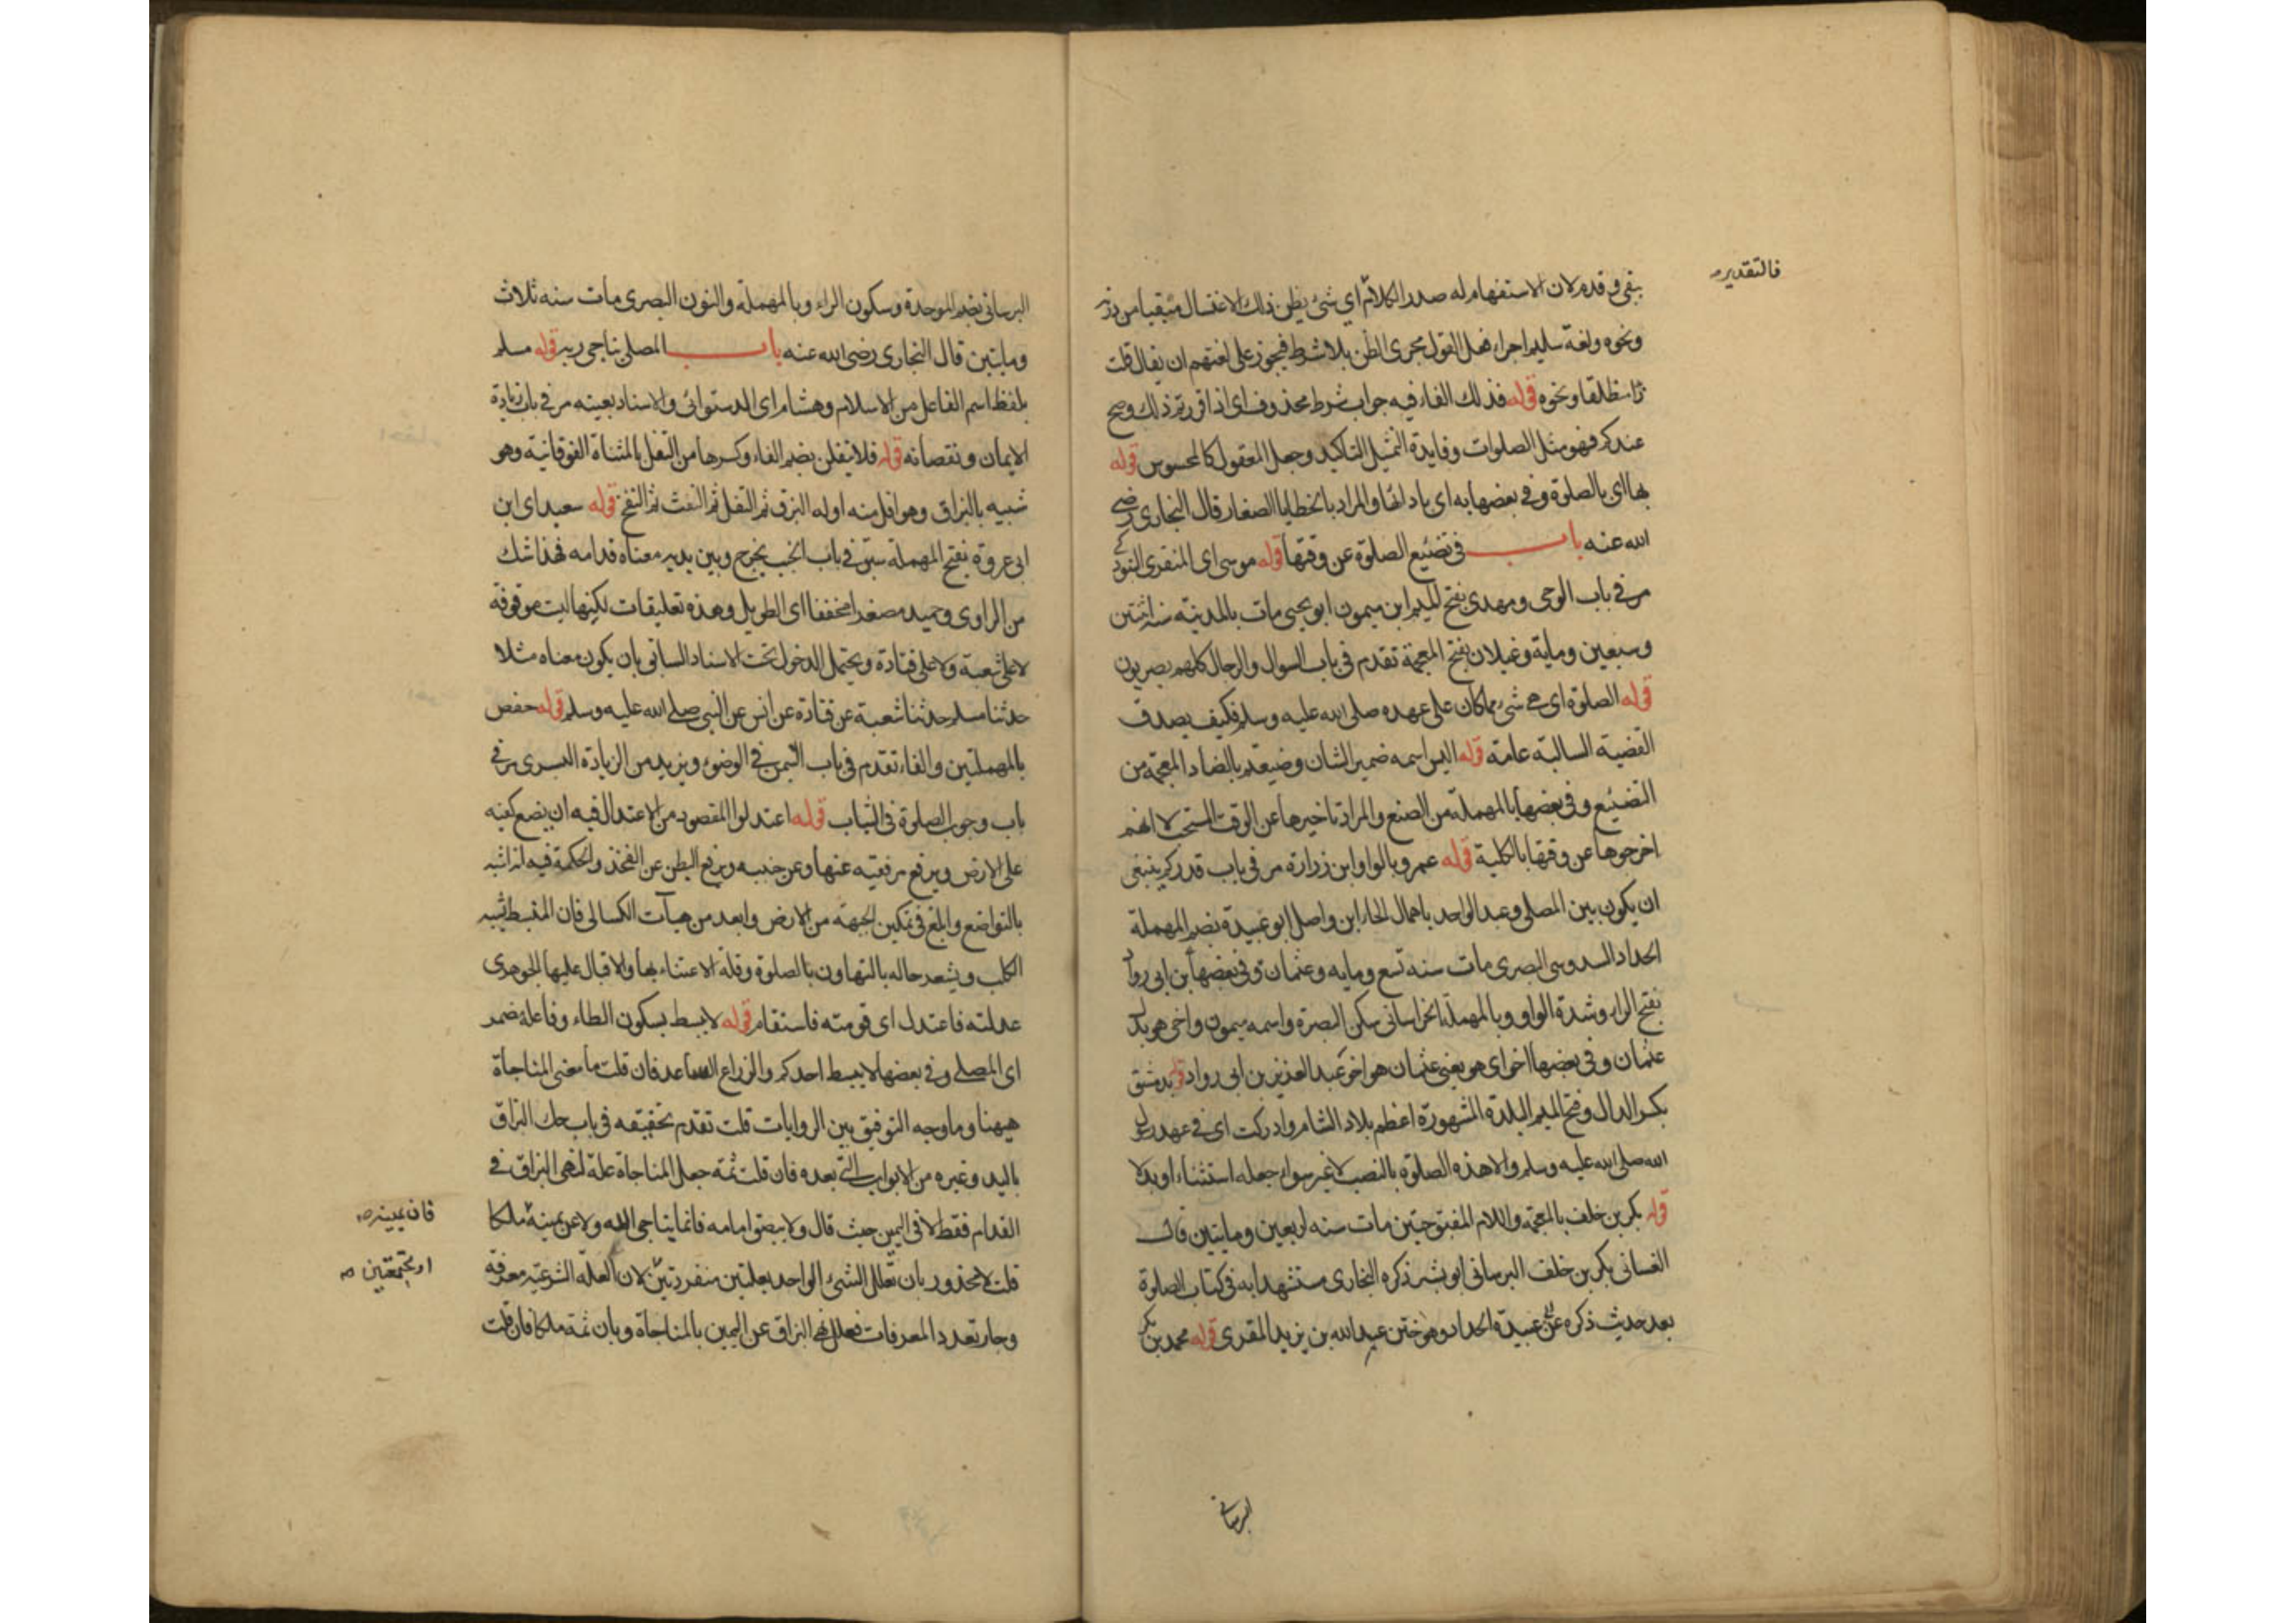 فالتقدير
يبقى وقدم لان الاستفهام له صدر الكلام اي شئ يظن ذلك الاغتسال مبقيا من درنه
ونحوه ولغة سليم اجراء فعل القول مجرى الظن بلا شرط فيجوز على لغتهم ان يقال قلت
زيدا منطلقا ونحوه قوله فذلك الفاء فيه جواب شرط محذوف اى اذا اقررتم ذلك وصح
عندكم فهو مثل الصلوات وفايدة التمثيل التاكيد وجعل المعقول كالمحسوس قوله
بها اى بالصلوة وفى بعضها به اى بادائها والمراد بالخطايا الصغار قال البخارى رضى
الله عنه باب فى تضييع الصلوة عن وقتها قوله موسى اى المنقرى التبوذكى
مر فى باب الوحى ومهدى بفتح الميم ابن ميمون ابو يحيى مات بالمدينة سنة اثنتين
وسبعين وماية وغيلان بفتح المعجمة تقدم فى باب السواك والرجال كلهم بصريون
قوله الصلوة اى هى شئ مما كان على عهده صلى الله عليه وسلم فكيف يصدق
القضية السالبة عامة قوله اليس اسمه ضمير الشان وضيعتم بالضاد المعجمة من
التضييع وفى بعضها بالمهملة من الصنع والمراد تاخيرها عن الوقت المستحب لا انهم
اخرجوها عن وقتها بالكلية قوله عمرو بالواو ابن زرارة مر فى باب قدر كم ينبغى
ان يكون بين المصلى وعبد الواحد باهمال الحاء ابن واصل ابو عبيدة بضم المهملة
الحداد السدوسى البصرى مات سنه تسع ومايه وعثمان وفى بعضها بن ابى رواد
بفتح الراء وشدة الواو وبالمهملة الخراسانى سكن البصرة واسمه ميمون واخى هو بدل
عثمان وفى بعضها اخو اى هو يعنى عثمان هو اخو عبد العزيز بن ابى رواد قوله بدمشق
بكسر الدال وفتح الميم البلدة المشهورة اعظم بلاد الشام وادركت اى فى عهد رسول
الله صلى الله عليه وسلم والا هذه الصلوة بالنصب لا غير سواء جعله استثناء او بدلا
قوله بكر بن خلف بالمعجمة واللام المفتوحتين مات سنه اربعين ومايتين قال
الغسانى بكر بن خلف البرسانى ابو بشر ذكره البخارى مستشهدا به فى كتاب الصلوة
بعد حديث ذكره عن ابى عبيدة الحداد وهو ختن عبد الله بن يزيد المقرى قوله محمد بن بكر
البرسانى
البرسانى بضم الموحدة وسكون الراء وبالمهملة والنون البصرى مات سنه ثلاث
ومايتين قال البخارى رضى الله عنه باب المصلى يناجى ربه قوله مسلم
بلفظ اسم الفاعل من الاسلام وهشام اى الدستوائى والاسناد بعينه مر فى باب زيادة
الايمان ونقصانه قوله فلا يتفلن بضم الفاء وكسرها من التفل بالمثناة الفوقانية وهو
شبيه بالبزاق وهو اقل منه اوله البزق ثم التفل ثم النفث ثم النفخ قوله سعيد اى ابن
ابى عروة بفتح المهملة سبق فى باب الجنب يخرج وبين يديه معناه قدامه فهذا شك
من الراوى وحميد مصغرا مخففا اى الطويل وهذه تعليقات لكنها ليست موقوفة
لا على شعبة ولا على قتادة ويحتمل الدخول تحت الاسناد السابق بان يكون معناه مثلا
حدثنا مسلم حدثنا شعبة عن قتادة عن انس عن النبى صلى الله عليه وسلم قوله حفص
بالمهملتين والفاء تقدم فى باب التيمن فى الوضوء ويزيد من الزيادة التسترى مر فى
باب وجوب الصلوة فى الثياب قوله اعتدلوا المقصود من الاعتدال فيه ان يضع كفيه
على الارض ويرفع مرفقيه عنها وعن جنبيه ويرفع البطن عن الفخذ والحكمة فيه انه اشبه
بالتواضع وابلغ فى تمكين الجبهة من الارض وابعد من هيآت الكسالى فان المنبسط شبيه
الكلب ويشعر حاله بالتهاون بالصلوة وقلة الاعتناء بها والاقبال عليها الجوهرى
عدلته فاعتدل اى قومته فاستقام قوله لا يبسط بسكون الطاء وفاعله ضمير
اى المصلى وفى بعضها لا يبسط احدكم والذراع الساعد فان قلت ما معنى المناجاة
هيهنا وما وجه التوفيق بين الروايات قلت تقدم تحقيقه فى باب حك البزاق
باليد وغيره من الابواب التى بعده فان قلت ثمة جعل المناجاة علة لنهى البزاق فى
القدام فقط لا فى اليمين حيث قال ولا يبصق امامه فانما يناجى الله ولا عن يمينه ملكا
فان يمينه
قلت لا محذور بان تعلل الشئ الواحد بعلتين منفردتين لان العلة الشرعية معرفة
او مجتمعتين
وجاز تعدد المعرفات فعلل نهى البزاق عن اليمين بالمناجاة وبان ثمة ملكا فان قلت